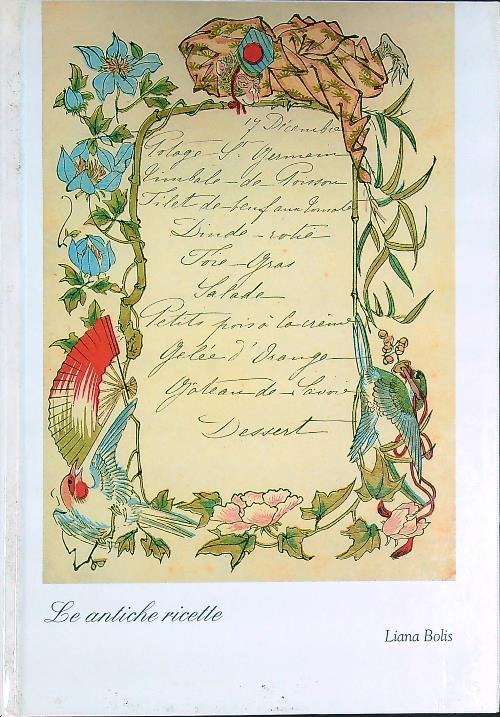 17 Décembre
Potage St Germain
Timbale de Poisson
Filet de bœuf aux tomates
Dinde rotie
Foie Gras
Salade
Petits pois à la crème
Gelée d'Orange
Gâteau de Savoie
Dessert
Le antiche ricette
Liana Bolis